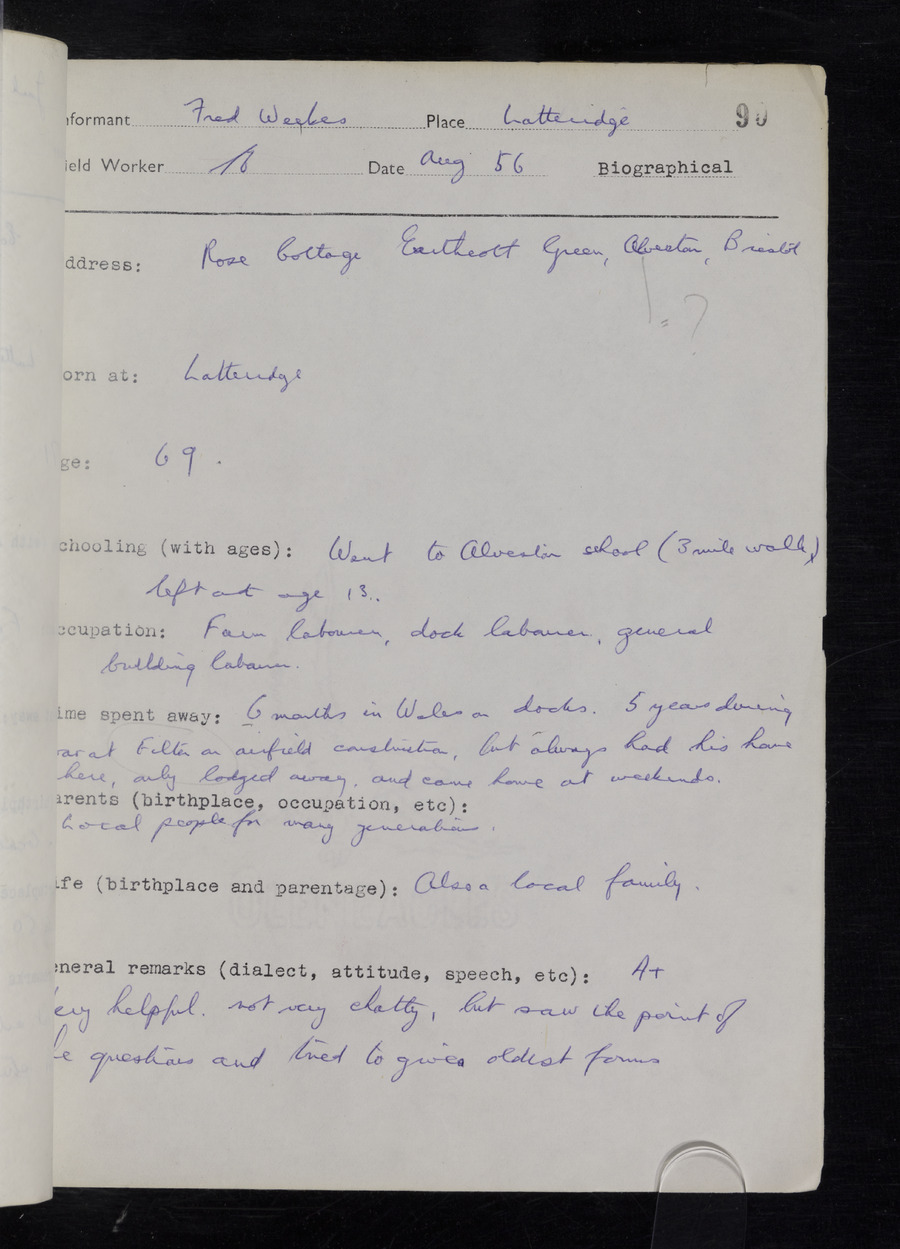 nformant Fred Weekes Place Latteridge 90
ield Worker Date Aug 56 Biographical
ddress: Rose Cottage Earthcott Green, Alveston, Bristol
= ?
orn at: Latteridge
ge: 69.
chooling (with ages): Went to Alveston school (3 mile walk)
left at age 13.
ccupation: Farm labourer, dock labourer, general
building labourer.
ime spent away: 6 months in Wales on docks. 5 years during
war at Filton on airfield construction, but always had his home
here, only lodged away, and came home at weekends.
arents (birthplace, occupation, etc):
Local people for many generations.
ife (birthplace and parentage): Also a local family.
eneral remarks (dialect, attitude, speech, etc): A+
ery helpful. not very chatty, but saw the point of
he questions and tried to give oldest forms